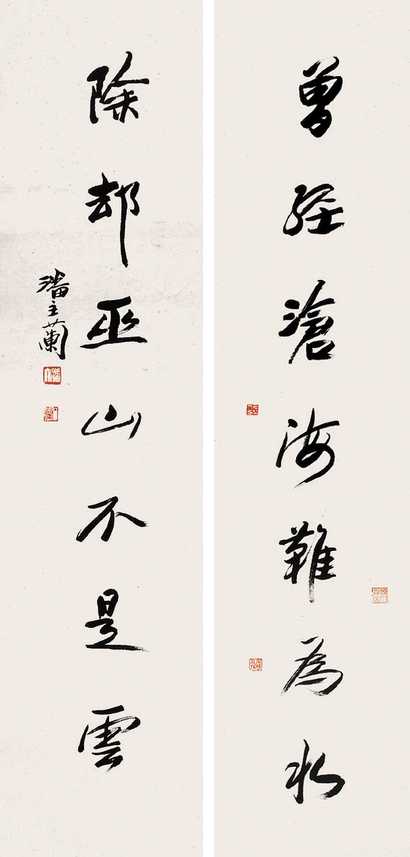 曾經滄海難為水
除却巫山不是雲
潘主蘭